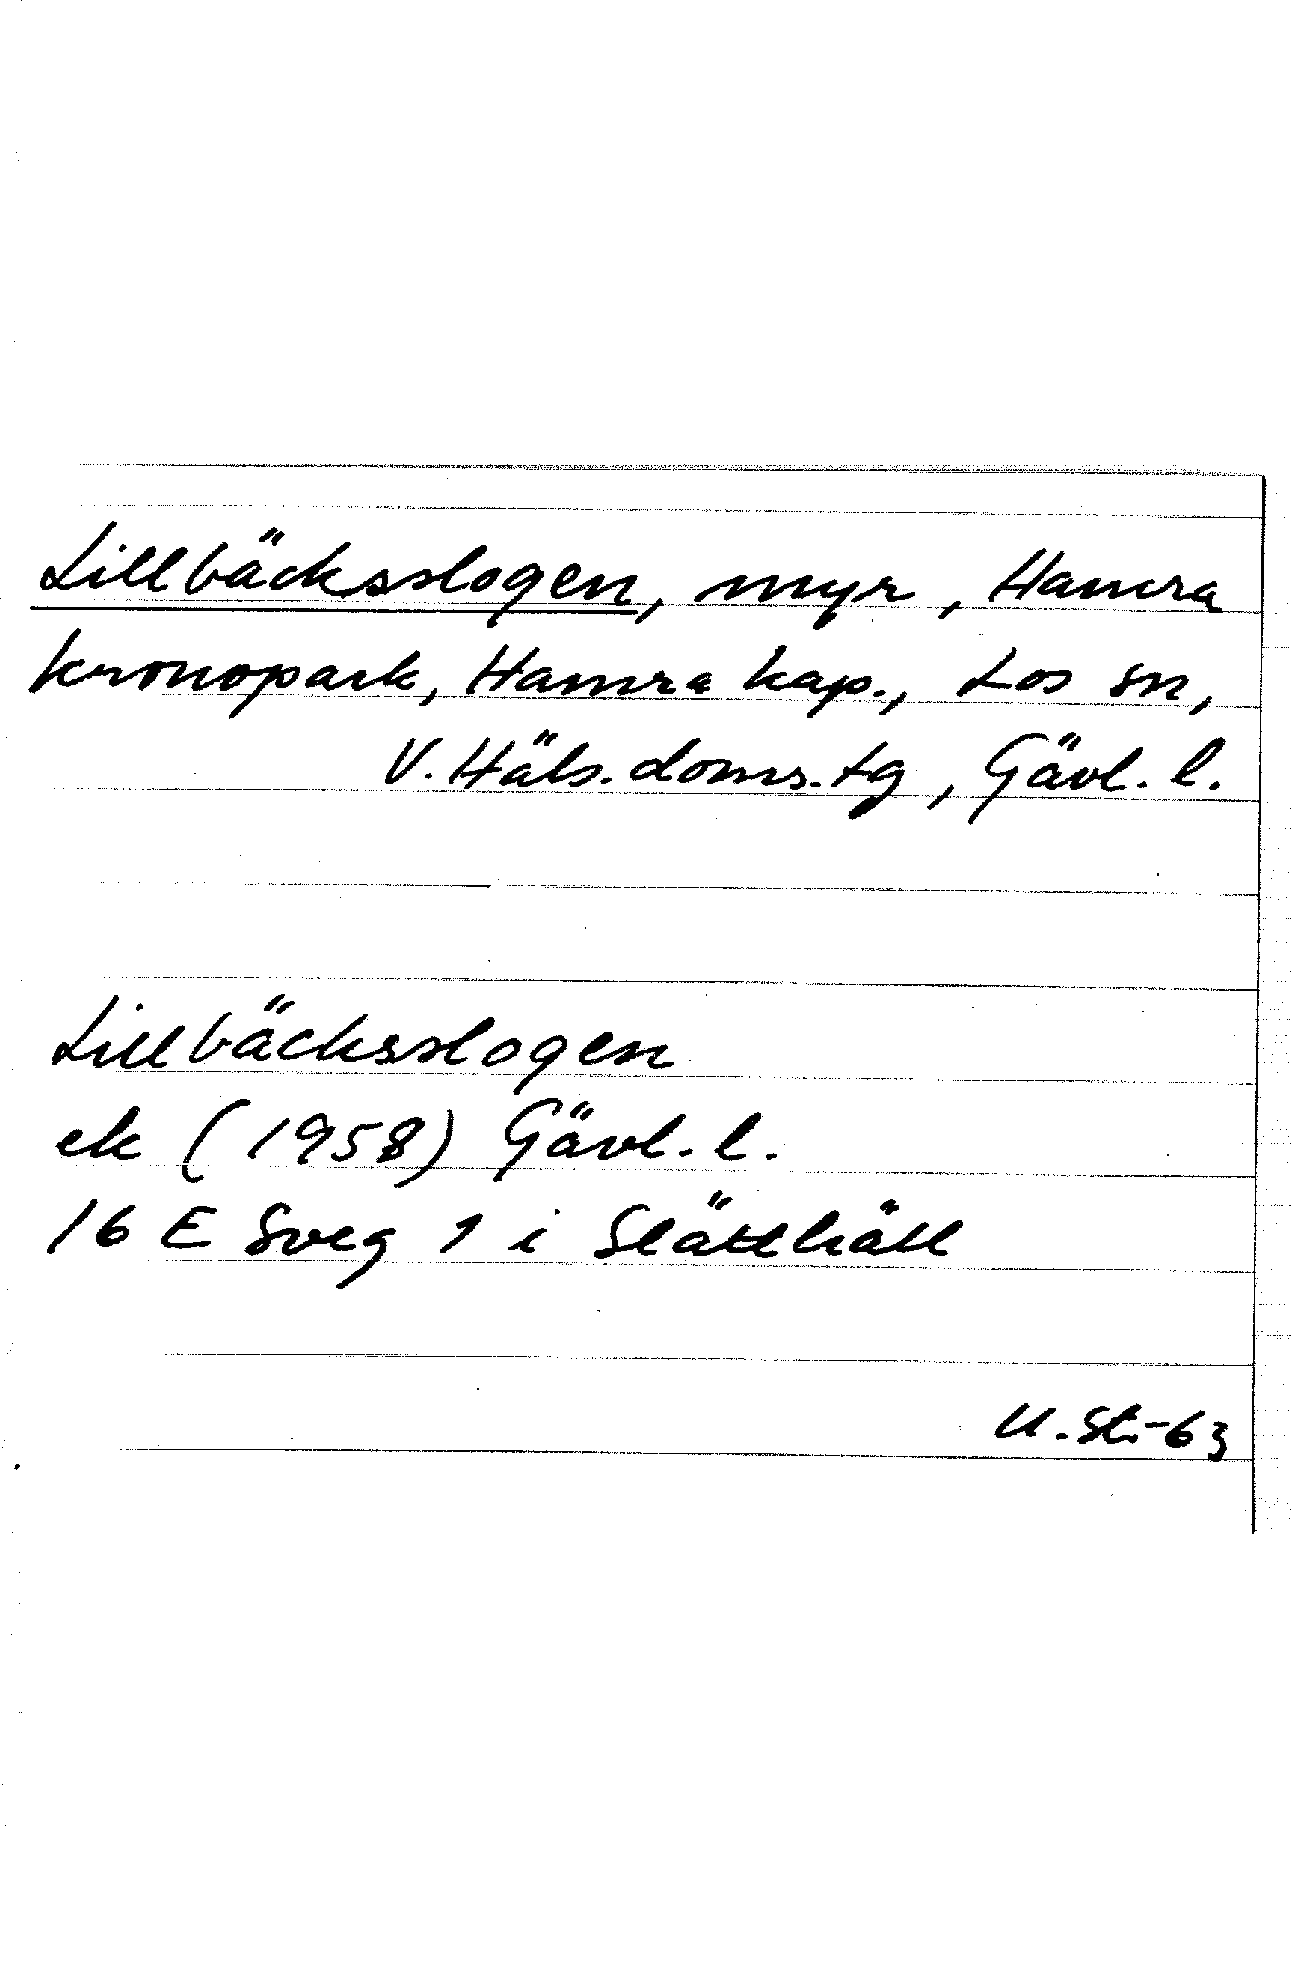 Lillbäcksslogen, myr, Hamra
kronopark, Hamra kap., Los sn,
V. Häls. doms. tg, Gävl. l.
Lillbäcksslogen
ek (1958) Gävl. l.
16 E Sveg 1 i Slätthåll
U. St. -63